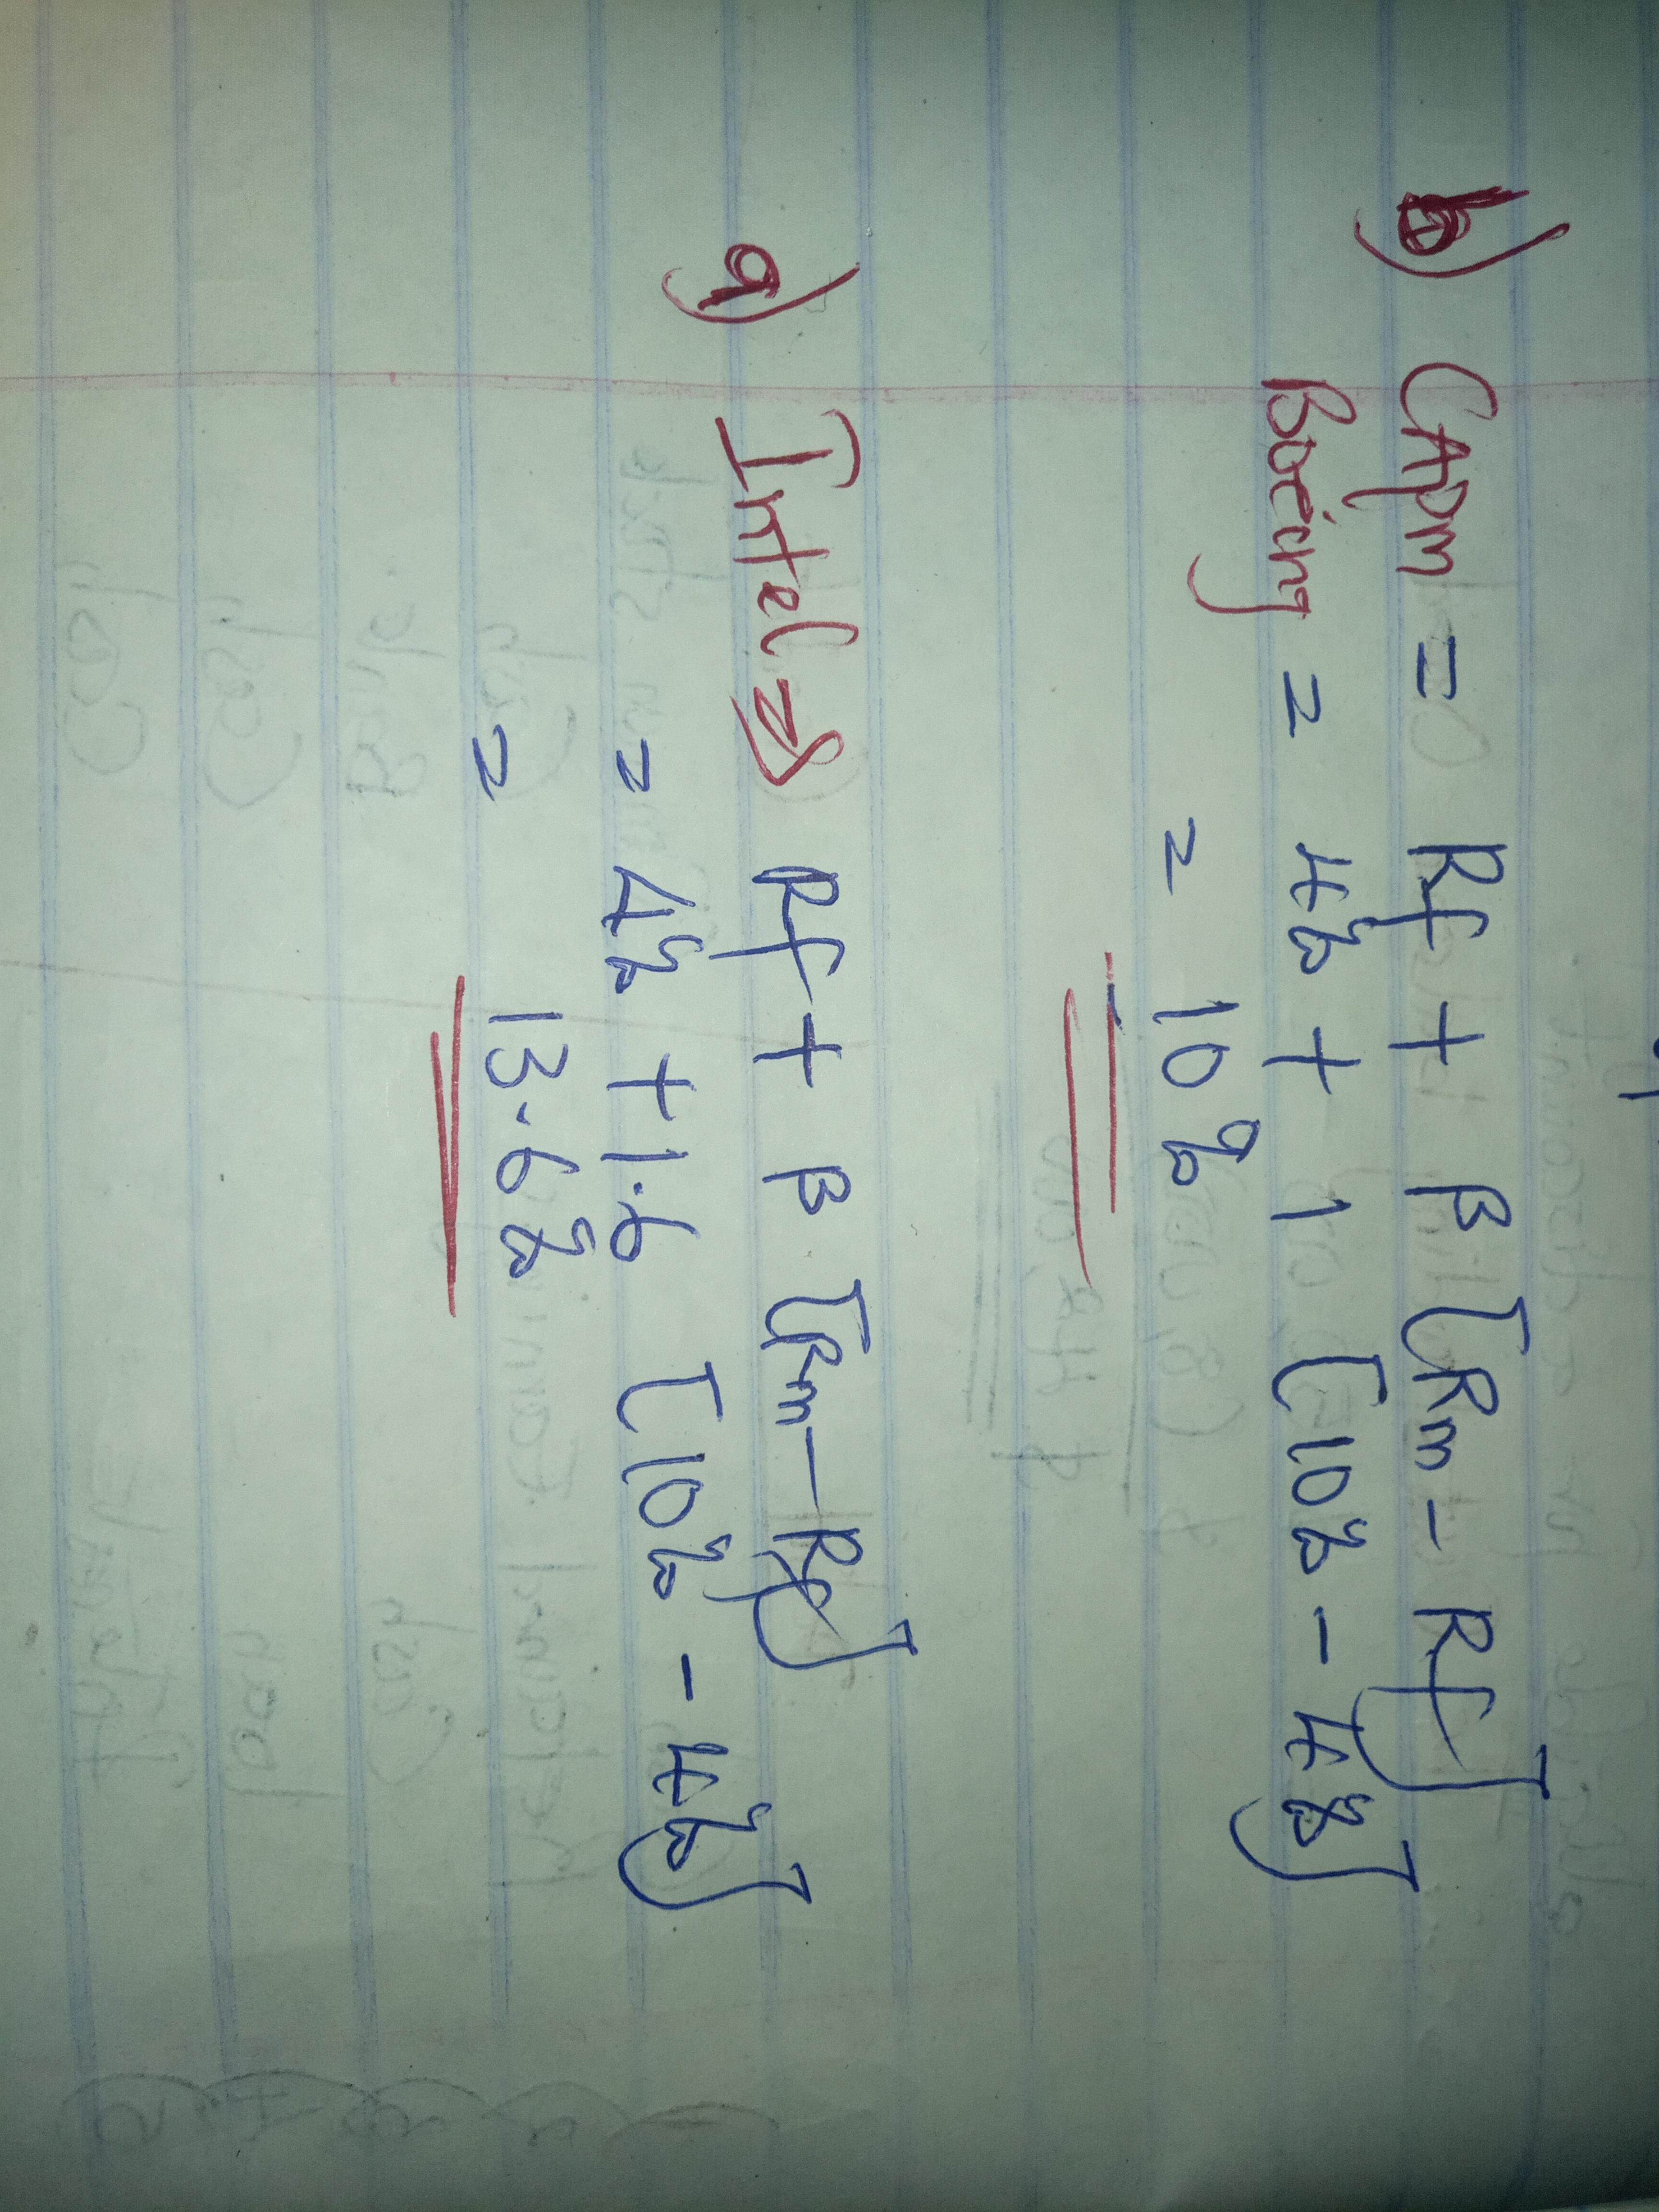 b) CAPM = Rf + β [Rm - Rf]
Boeing = 4% + 1 [10% - 4%]
= 10%
a) Intel => Rf + β [Rm - Rf]
= 4% + 1.6 [10% - 4%]
= 13.6%